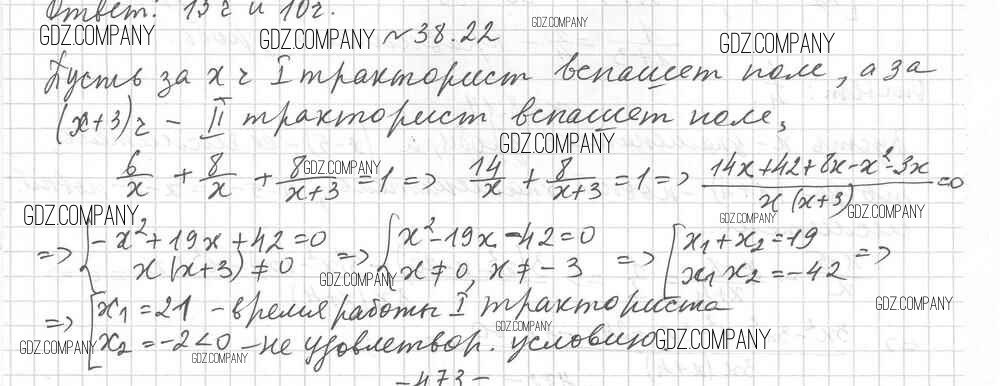 Ответ: 13 ч и 10 ч.
GDZ.COMPANY GDZ.COMPANY №38.22 GDZ.COMPANY GDZ.COMPANY
Пусть за x ч I тракторист вспашет поле, а за
(x+3) ч – II тракторист вспашет поле,
GDZ.COMPANY
6/x + 8/x + 8/(x+3) = 1 => 14/x + 8/(x+3) = 1 => (14x+42+8x-x²-3x)/(x(x+3)) = 0
GDZ.COMPANY
GDZ.COMPANY GDZ.COMPANY GDZ.COMPANY
=> { -x²+19x+42=0 => { x²-19x-42=0 => [ x₁+x₂=19 =>
x(x+3)≠0 x≠0, x≠-3 x₁x₂=-42
GDZ.COMPANY
=> [ x₁=21 – время работы I тракториста
GDZ.COMPANY GDZ.COMPANY
x₂=-2<0 – не удовлетвор. условию
GDZ.COMPANY GDZ.COMPANY GDZ.COMPANY
-473-